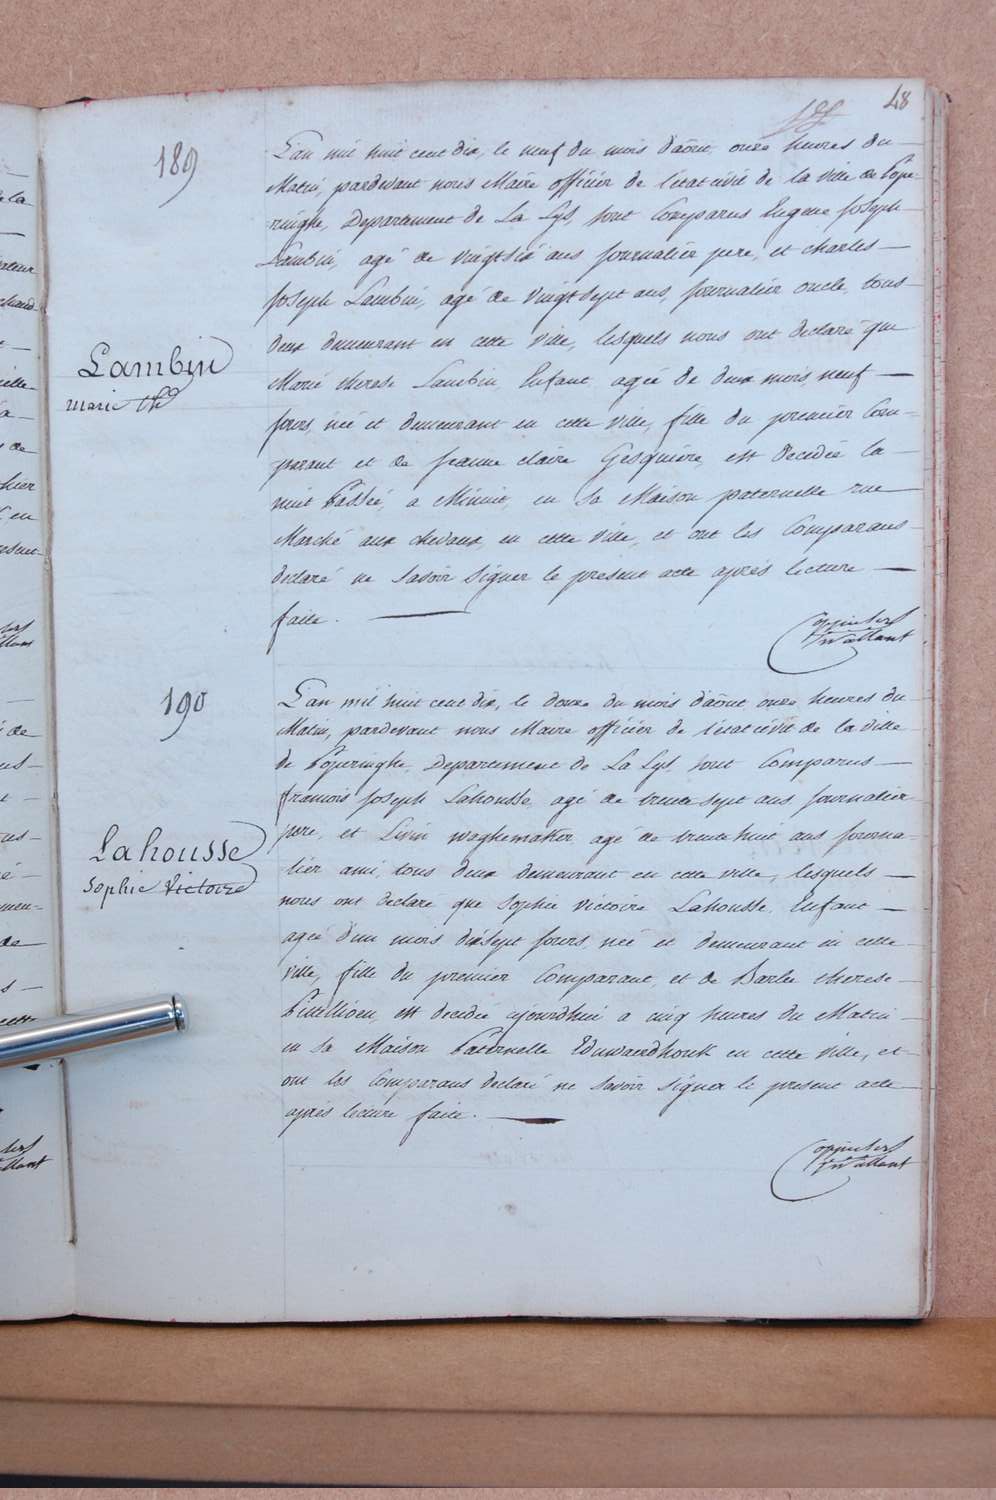 48
189
L'an mil huit cent dix, le neuf du mois d'aôut onze heures du
Matin, pardevant nous Maire officier de l'état civil de la ville de Pope-
ringhe, Departement de La Lys, sont Comparus Eugene Joseph
Lambin, agé de vingtsix ans journalier pere, et Charles
Joseph Lambin, agé de vingtsept ans, journalier oncle, tous
deux demeurant en cette ville, lesquels nous ont declaré que
Lambin
Marie therese Lambin, Enfant agée de deux mois neuf
marie th
jours, née et demeurant en cette ville, fille du premier Com-
parant et de jeanne claire Gesquiere, est decedée la
nuit Passée, a Minuit, en sa Maison paternelle rue
Marché aux chevaux, en cette ville, et ont les Comparans
declaré ne savoir signer le present acte aprés lecture
faite.
190
L'an mil huit cent dix, le douze du mois d'aôut onze heures du
Matin, pardevant nous Maire officier de l'état civil de la ville
de Poperinghe, Departement de La Lys, sont Comparus
francois Joseph Lahousse, agé de trente sept ans, journalier
pere, et Livin waghemakker agé de trente huit ans journa-
Lahousse
lier ami, tous deux demeurant en cette ville, lesquels
Sophie Victoire
nous ont declare que Sophie victoire Lahousse, Enfant
agée d'un mois dixsept jours, née et demeurant en cette
ville, fille du premier Comparant, et de Barbe therese
est decedée ajourdhui a cinq heures du Matin
en sa Maison Paternelle en cette ville, et
ont les Comparans declaré ne savoir signer le present acte
aprés lecture faite.